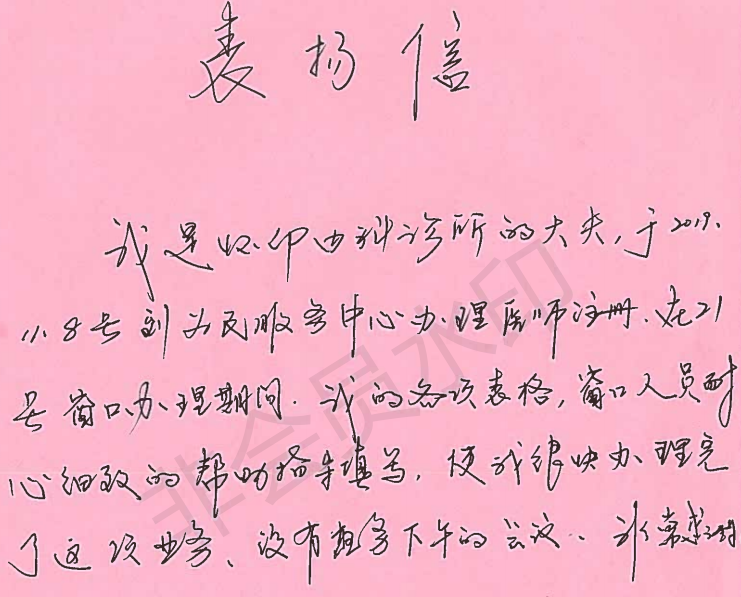 表扬信
我是心印内科诊所的大夫,于2019.
11.8号到为民服务中心办理医师注册.在21
号窗口办理期间.我的各项表格,窗口人员耐
心细致的帮助指导填写,使我很快办理完
了这项业务、没有耽务下午的会议..非常感谢
非会员水印